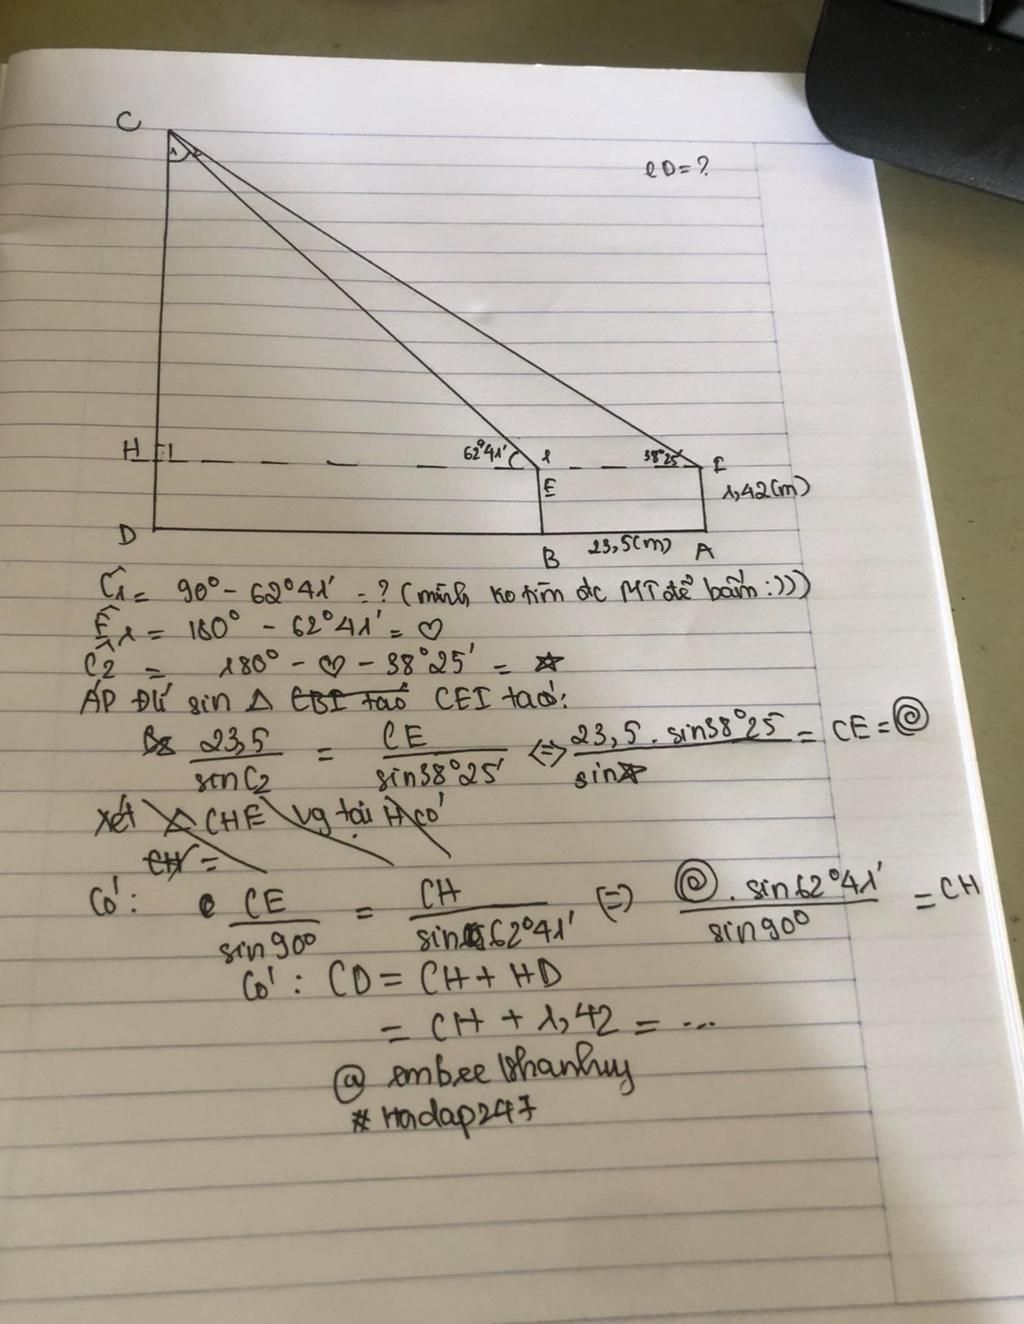 C
CD = ?
H
62°41'
1
38°25'
I
E
1,42(m)
D
B
23,5(m)
A
Ĉ1 = 90° - 62°41' = ? (mình ko tìm đc MT để bấm :)))
Ê1 = 180° - 62°41' = ♡
Ĉ2 = 180° - ♡ - 38°25' = ☆
ÁP ĐL sin △ EBI taó CEI taó:
23,5 / sin C2 = CE / sin38°25' <=> 23,5 . sin38°25 / sin☆ = CE = @
xét △ CHE vg tại H có
CH =
Có: CE / sin90° = CH / sin 62°41' (=) @ . sin62°41' / sin90° = CH
Có: CD = CH + HD
= CH + 1,42 = ...
@ embee khanhuy
# Hoidap247